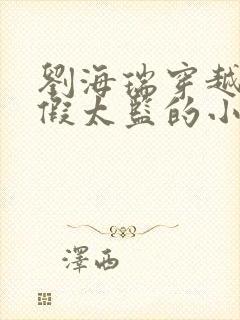 劉海瑞穿越
假太監的小
澤西